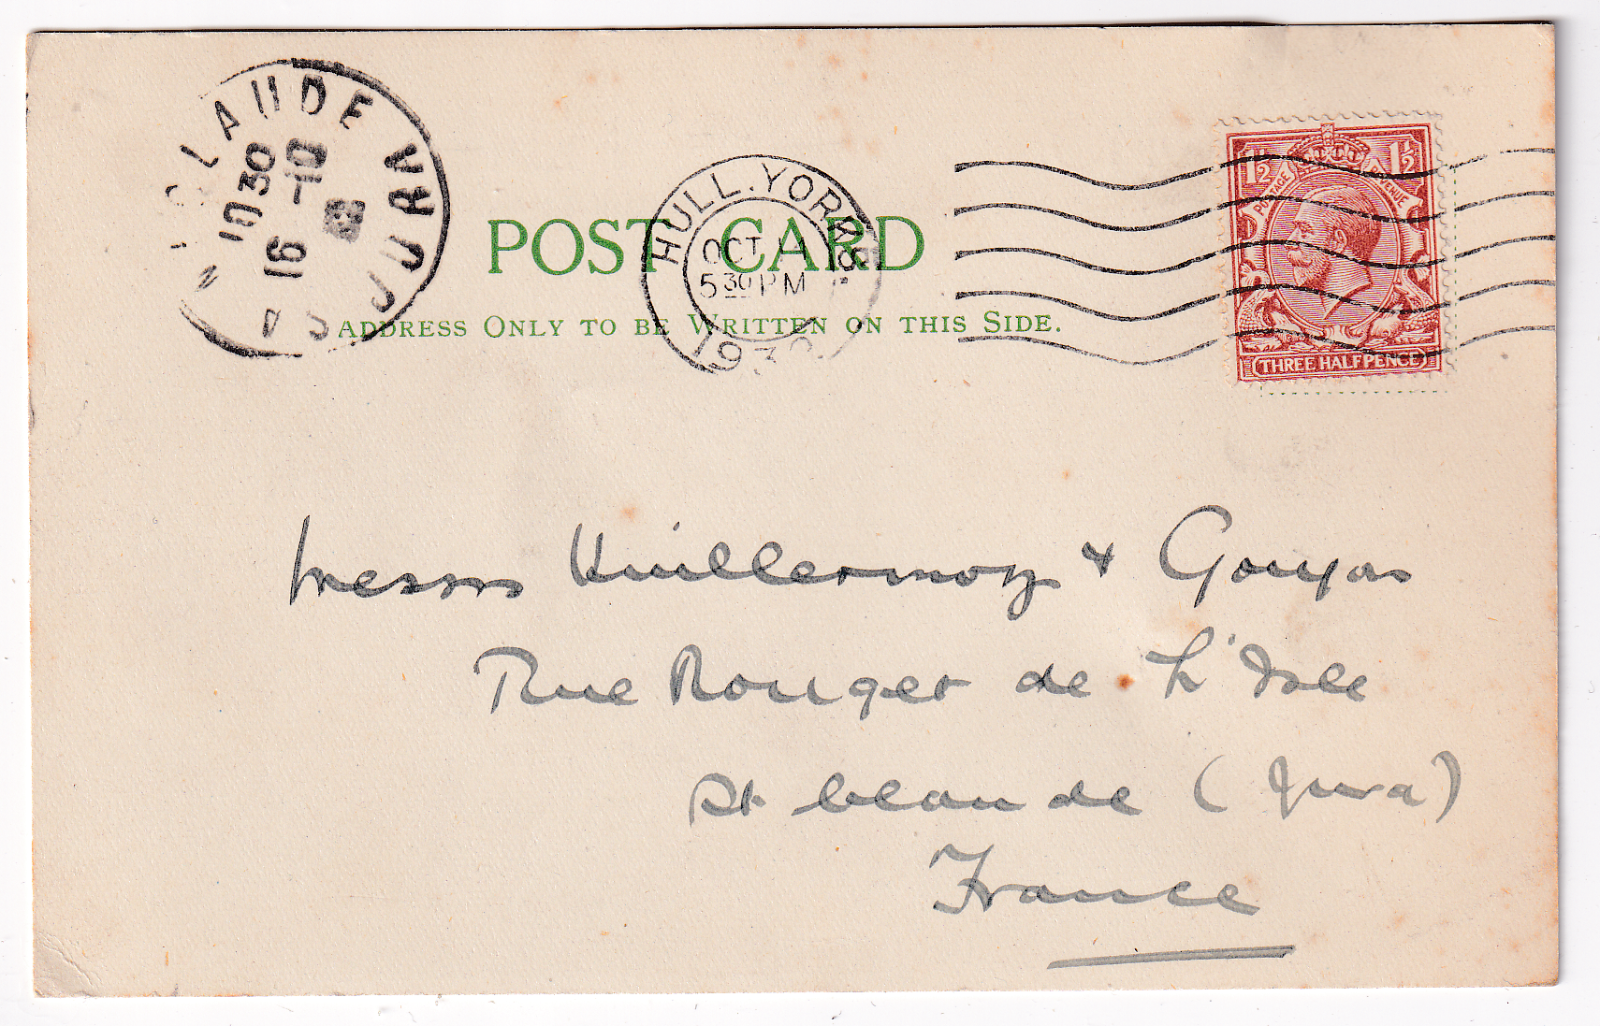 CLAUDE JURA
10 30
16 -10
POST CARD
HULL. YORKS.
OCT
5 30 PM
193
ADDRESS ONLY TO BE WRITTEN ON THIS SIDE.
1½ 1½
POSTAGE REVENUE
THREE HALFPENCE
Messrs Vuillermoz & Gouyon
Rue Rouget de L'Isle
St Claude (Jura)
France